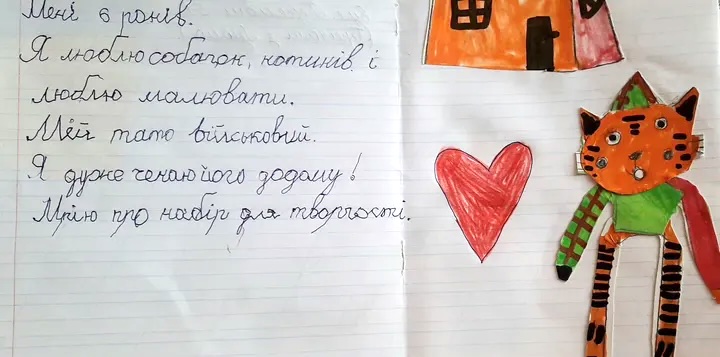 Мені 6 років.
Я люблю собачок, котиків і
люблю малювати.
Мій тато військовий.
Я дуже чекаю його додому!
Мрію про набір для творчості.